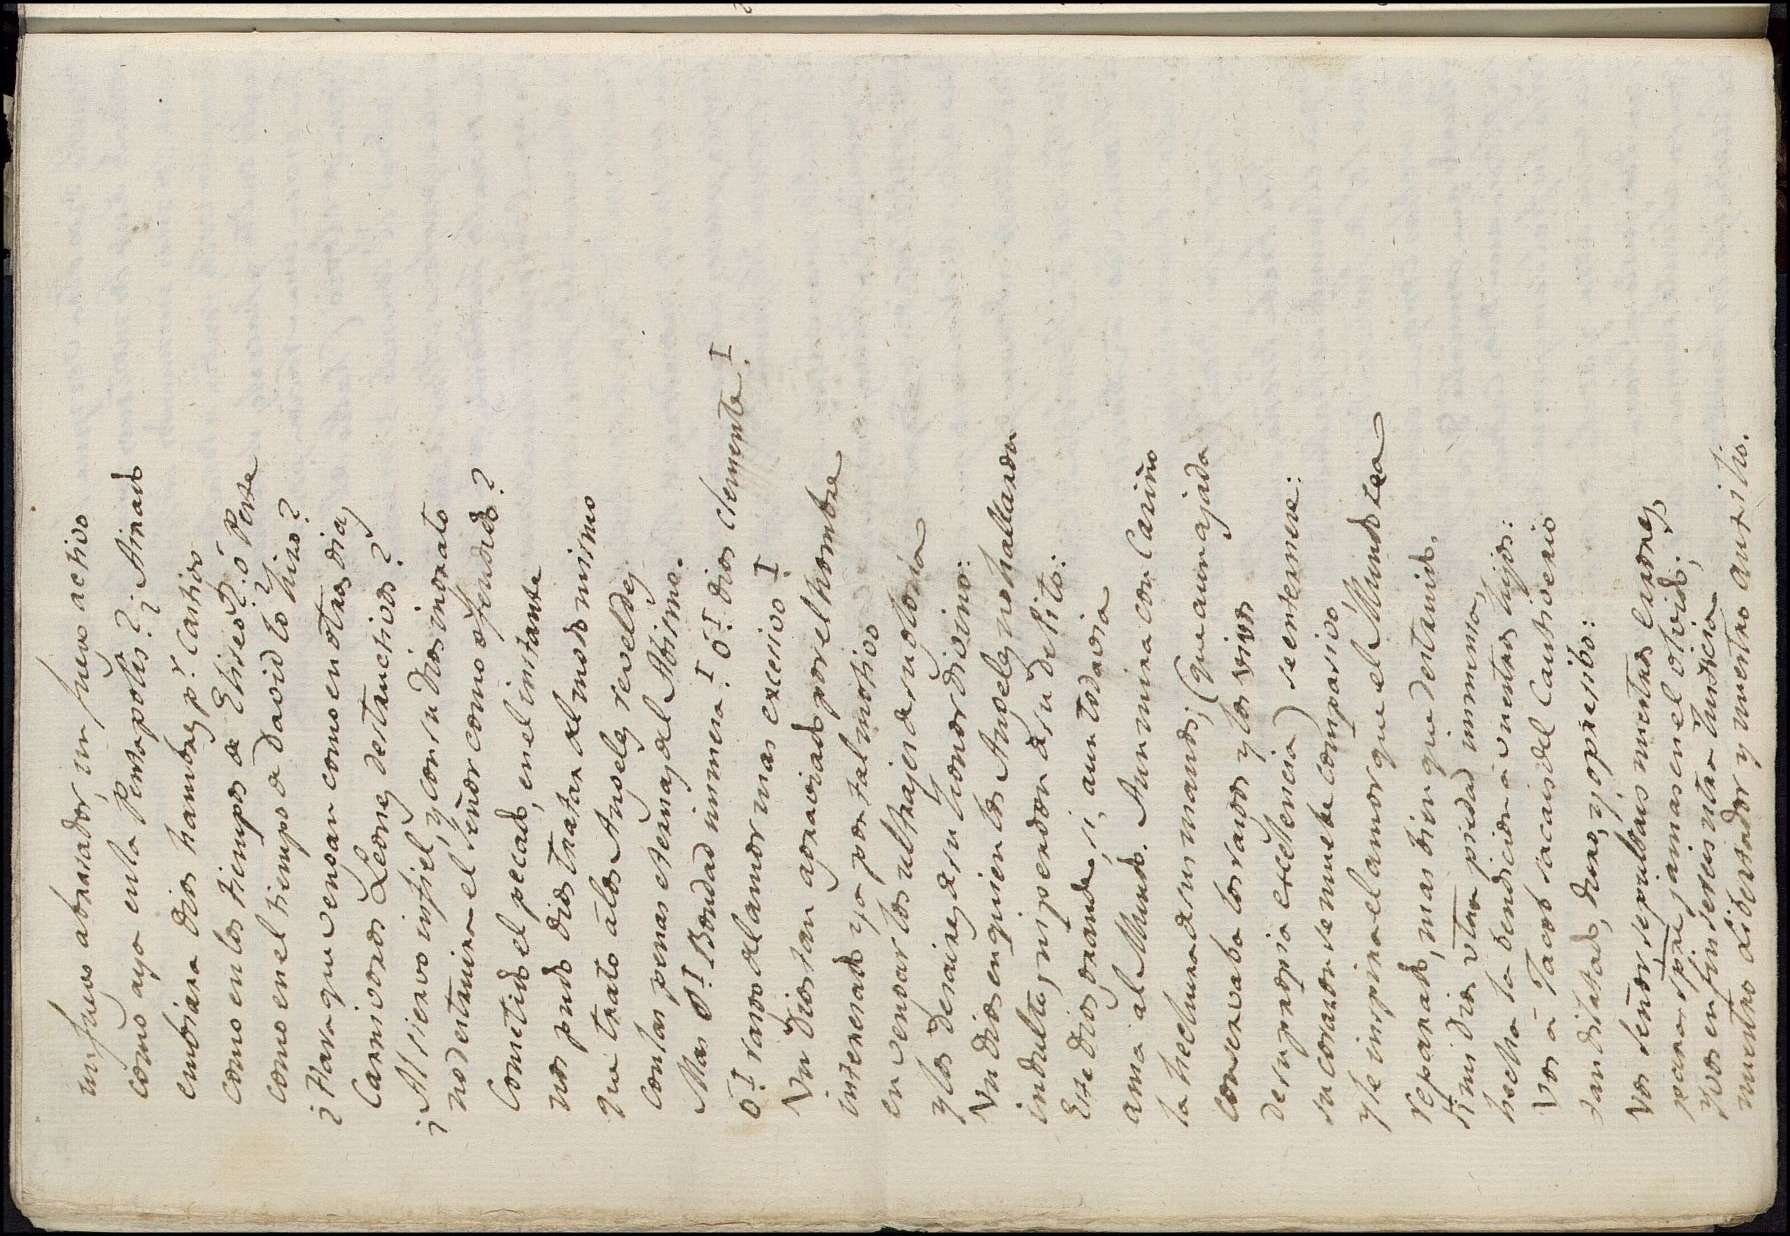 un fuego abrasador, un fuego activo
como cayo en la Pentapolis? ¿Airado
embiara Dios hambres pr. Castigo
como en los tiempos de Eliseo? ¿ó Peste
como en el tiempo de David lo hizo?
¿Hara que vengan como en otros dias
Carnivoros Leones destructivos?
¿Al siervo infiel, y con su Dios ingrato
no destruira el Señor como ofendido?
Cometido el pecado, en el instante
nos pudo Dios tratar del modo mismo
que trato â los Angeles reveldes
con las penas eternas del Abismo.
Mas ô! Bondad inmensa! ô! Dios Clemente!
ô! rasgo del amor mas excesivo!
Un Dios tan agraviado por el hombre
interesado ya por tal motivo
en vengar los ultrajes de su gloria
y los desaires de su honor divino:
Un Dios en quien los Angeles no hallaron
indulto, ni perdon de su delito:
Este Dios grande, si, aun todavia
ama al Mundo. Aun mira con Cariño
la hechura de sus manos; (que aun ajada
conservaba los rasgos y los visos
de su propia excellencia) se enternece:
su corazon se mueve compasivo,
y le inspira el amor que el Mundo sea
reparado, mas bien que destruido.
Si mi Dios vtra piedad inmensa,
hecha la bendicion â vuestros hijos:
Vos â Jacob sacais del Cautiverio
tan dilatado, duro, y opresibo:
Vos Señor sepultais nuestros errores
para spre jamas en el olvido;
Y vos en fin sereis ntra Justicia
nuestro Libertador y nuestro auxilio.